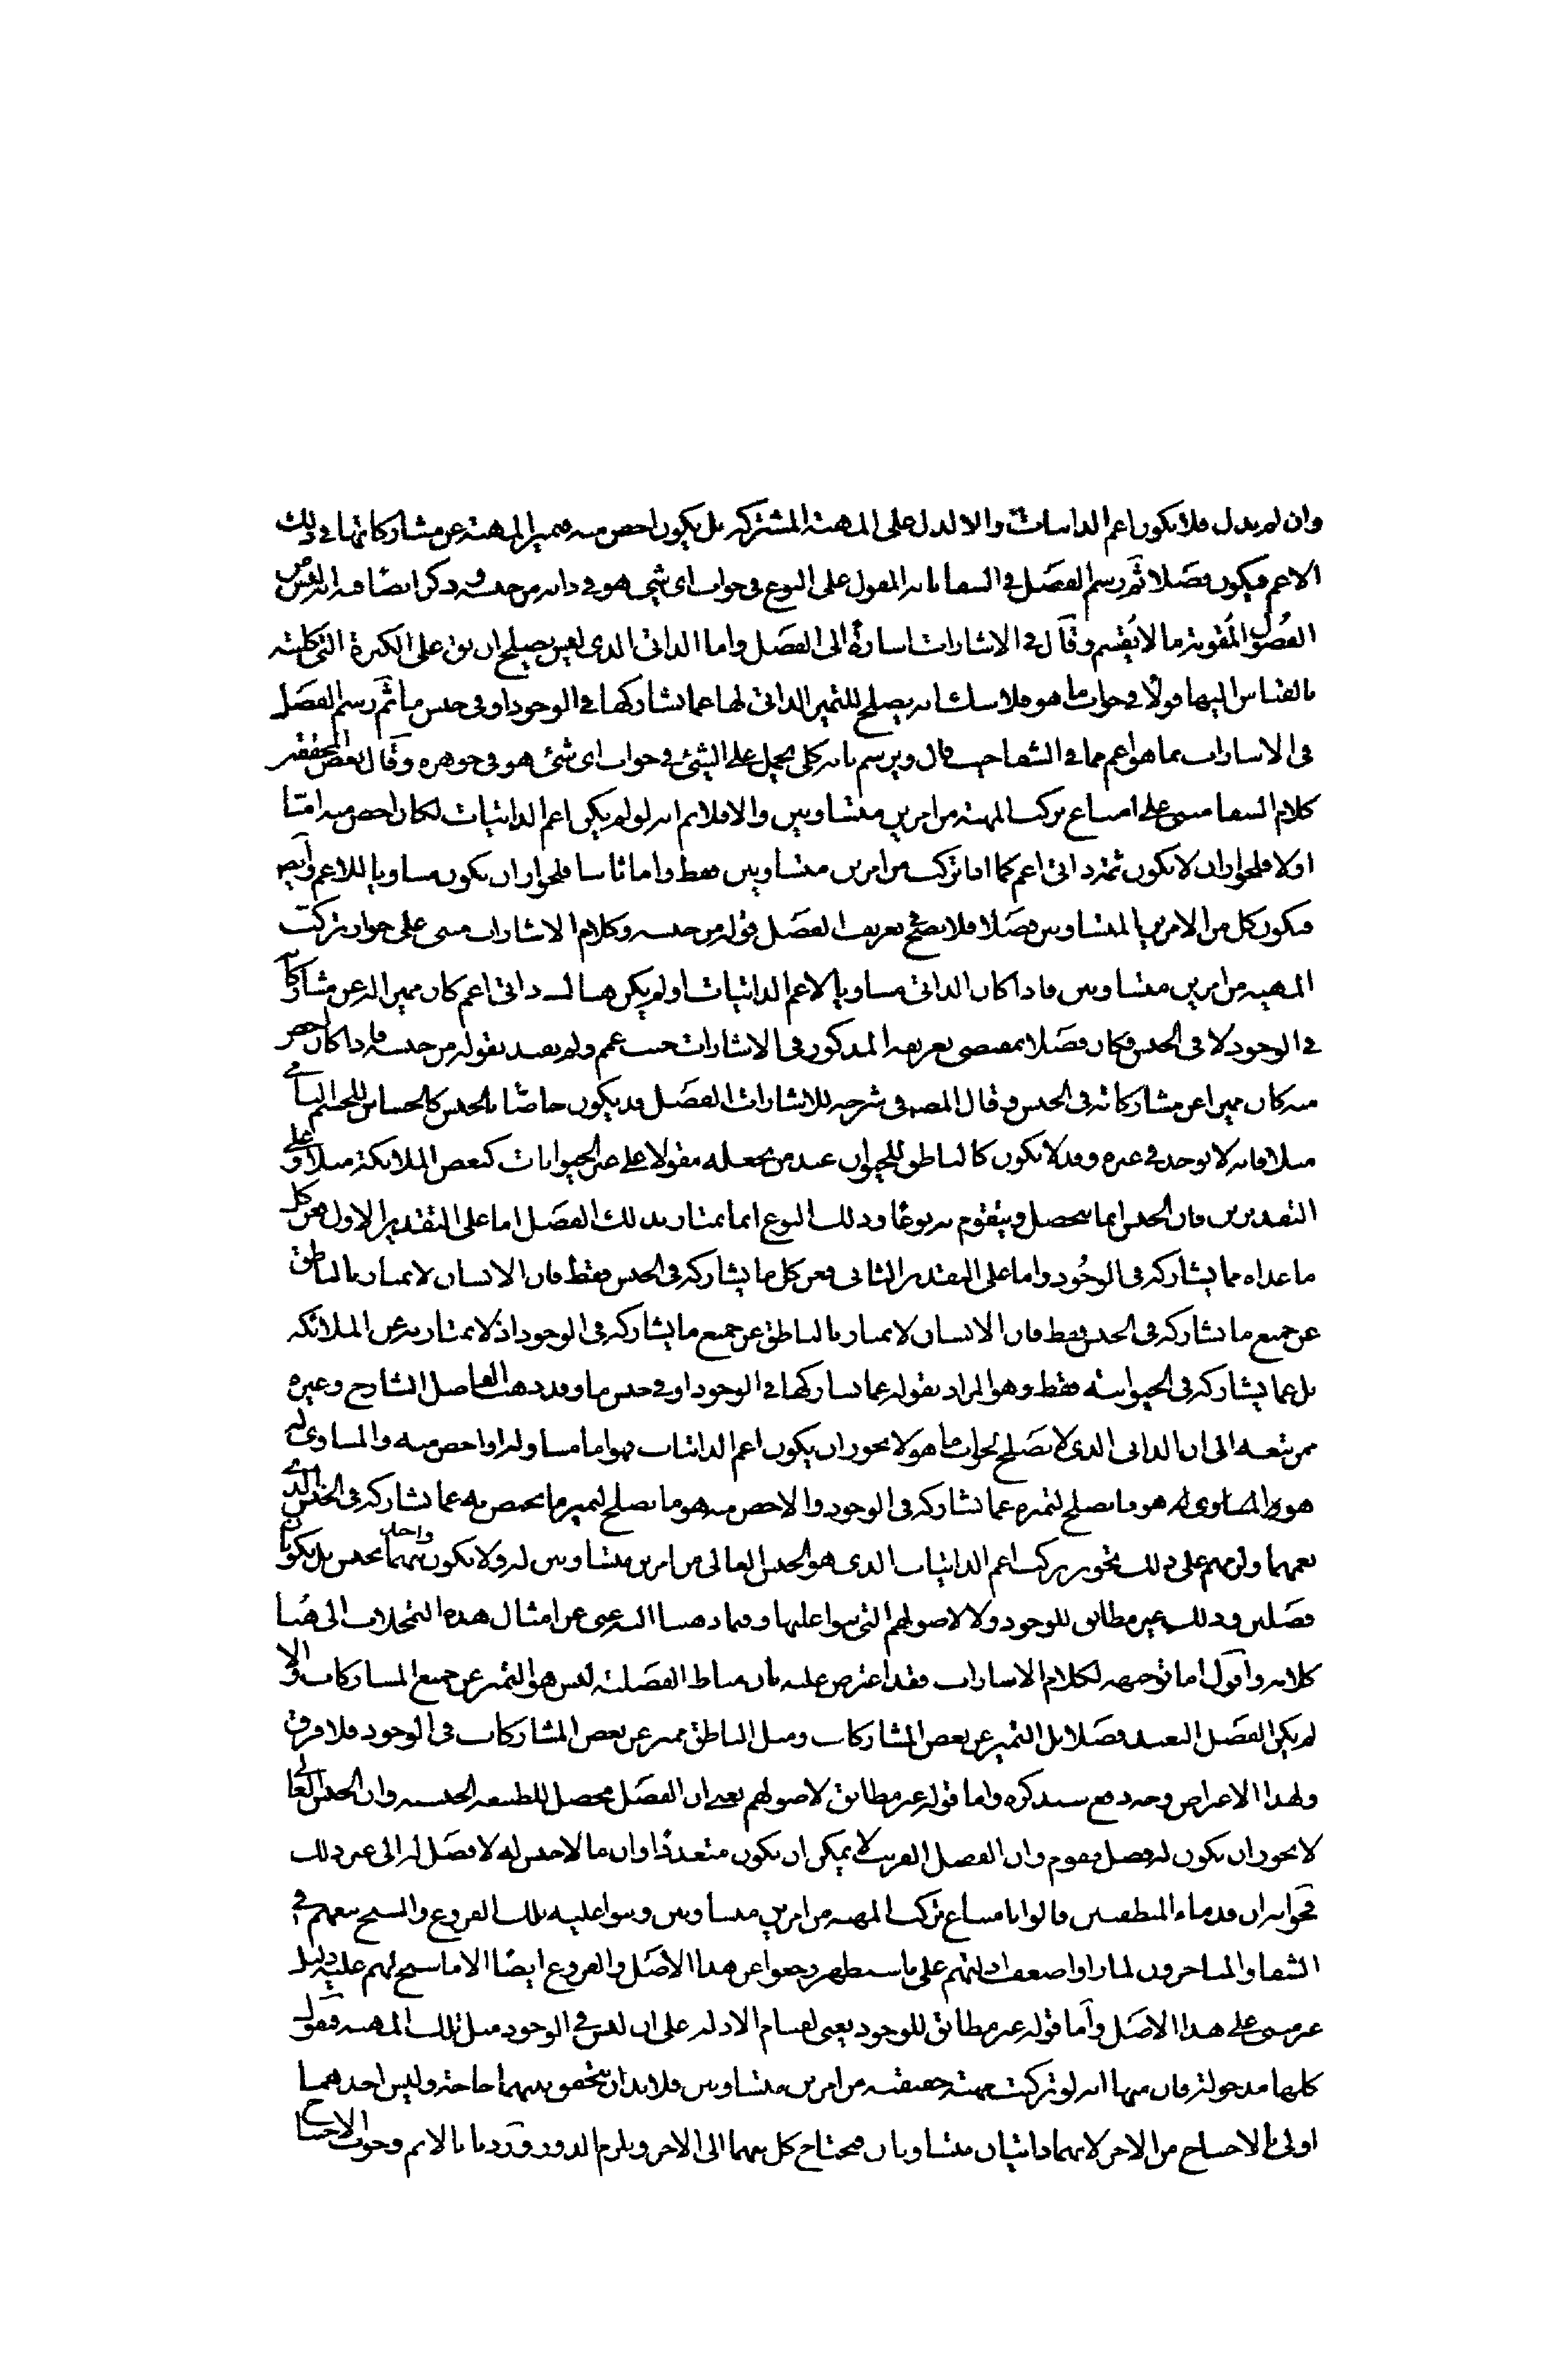 وان لم يدل فلا يكون اعم الذاتيات والا لدل على المهية المشتركة بل يكون اخص منه فيميز المهية عن مشاركاتها في ذلك
الاعم فيكون فصلا ثم رسم الفصل في الشفا بانه المقول على النوع في جواب اى شئ هو في ذاته من جنسه وذكر ايضا فيه انه ليس من
الفصول المقومة ما لا يقسم وقال في الاشارات اشارة الى الفصل واما الذاتى الذى ليس يصلح ان يق على الكثرة التى كليته
بالقياس اليها قولا في جواب ما هو فلا شك انه يصلح للتميز الذاتى لها عما يشاركها في الوجود او في جنس ما ثم رسم الفصل
فى الاشارات بما هو اعم مما في الشفا حيث قال ويرسم بانه كلى يحمل على الشئ في جواب اى شئ هو في جوهره وقال بعض المحققين
كلام الشفا مبنى على امتناع تركب المهية من امرين متساويين والا فلا نم انه لو لم يكن اعم الذاتيات لكان اخص منه امتا
اولا فلجواز ان لا يكون ثمة ذاتى اعم كما اذا تركب من امرين متساويين فقط واما ثانيا فلجواز ان يكون مساويا للاعم وايضا
فيكون كل من الامرين المتساويين فصلا فلا يصح في تعريف الفصل قوله من جنسه وكلام الاشارات مبنى على جواز تركب
المهية من امرين متساويين فاذا كان الذاتى مساويا لاعم الذاتيات او لم يكن هناك ذاتى اعم كان مميزا له عن مشاركاته
في الوجود لا في الجنس فكان فصلا بمقتضى تعريفه المذكور فى الاشارات حيث عمم ولم يقيد بقوله من جنسه فاذا كان اخص
منه كان مميزا عن مشاركاته فى الجنس وقال المصه فى شرحه للاشارات الفصل قد يكون خاصا بالجنس كالحساس للجسم النامى
مثلا فانه لا يوجد في غيره وقد لا يكون كالناطق للحيوان عند من يجعله مقولا على غير الحيوانات كبعض الملائكة مثلا وعلى
التقديرين فان الجنس انما يتحصل ويتقوم به نوعا وذلك النوع انما يمتاز بذلك الفصل اما على التقدير الاول فعن كل
ما عداه مما يشاركه فى الوجود واما على التقدير الثانى فعن كل ما يشاركه فى الجنس فقط فان الانسان لا يمتاز بالناطق
عن جميع ما يشاركه فى الجنس فقط فان الانسان لا يمتاز بالناطق عن جميع ما يشاركه فى الوجود اذ لا يمتاز به عن الملائكه
بل عما يشاركه فى الحيوانيته فقط وهو المراد بقوله عما يشاركها في الوجود او في جنس ما وقد ذهب الفاضل الشارح وغيره
ممن تبعه الى ان الذاتى الذى لا يصلح لجواب ما هو لا يجوز ان يكون اعم الذاتيات فهو اما مساو له او اخص منه والمساوى له
هو المساوى له هو ما يصلح لتميزه عما يشاركه فى الوجود والاخص منه هو ما يصلح لتميز ما يختص به عما يشاركه فى الجنس الذى
يعمهما ولزمهم على ذلك تجويز تركب اعم الذاتيات الذى هو الجنس العالى من امرين متساويين له ولا يكون واحد منهما بجنس بل يكونان
فصلين وذلك غير مطابق للوجود ولا لاصولهم التى بنوا عليها وفيما ذهبنا اليه غنى عن امثال هذه التمحلات الى هنا
كلامه واقول اما توجيهه لكلام الاشارات فقد اعترض عليه بان مناط الفصلية ليس هو التميز عن جميع المشاركات والا
لم يكن الفصل البعيد فصلا بل التميز عن بعض المشاركات ومثل الناطق مميز عن بعض المشاركات فى الوجود فلا فرق
ولهذا الاعتراض وجه دفع سنذكره واما قوله غير مطابق لاصولهم يعنى ان الفصل محصل للطبيعه الجنسيه وان الجنس العالى
لا يجوز ان يكون له فصل مقوم وان الفصل القريب لا يمكن ان يكون متعددا وان ما لا جنس له لا فصل له الى غير ذلك
فجوابه ان قدماء المنطقيين قالوا بامتناع تركب المهيه من امرين متساويين وبنوا عليه تلك الفروع والشيخ تبعهم في
الشفا والمتاخرون لما راوا ضعف ادلتهم على ما سيظهر رجعوا عن هذا الاصل والفروع ايضا الا ما سنح لهم عليه دليل
غير مبنى على هذا الاصل واما قوله غير مطابق للوجود يعنى لقيام الادله على ان ليس في الوجود مثل تلك المهيه فنقول
كلها مدخولة فان منها انه لو تركبت مهية حقيقيه من امرين متساويين فلا بد ان يتحقق بينهما حاجة وليس احدهما
اولى بالاحتياج من الاخر لانهما ذاتيان متساويان فيحتاج كل منهما الى الاخر ويلزم الدور ورد بانا لا نم وجوب الاحتياج